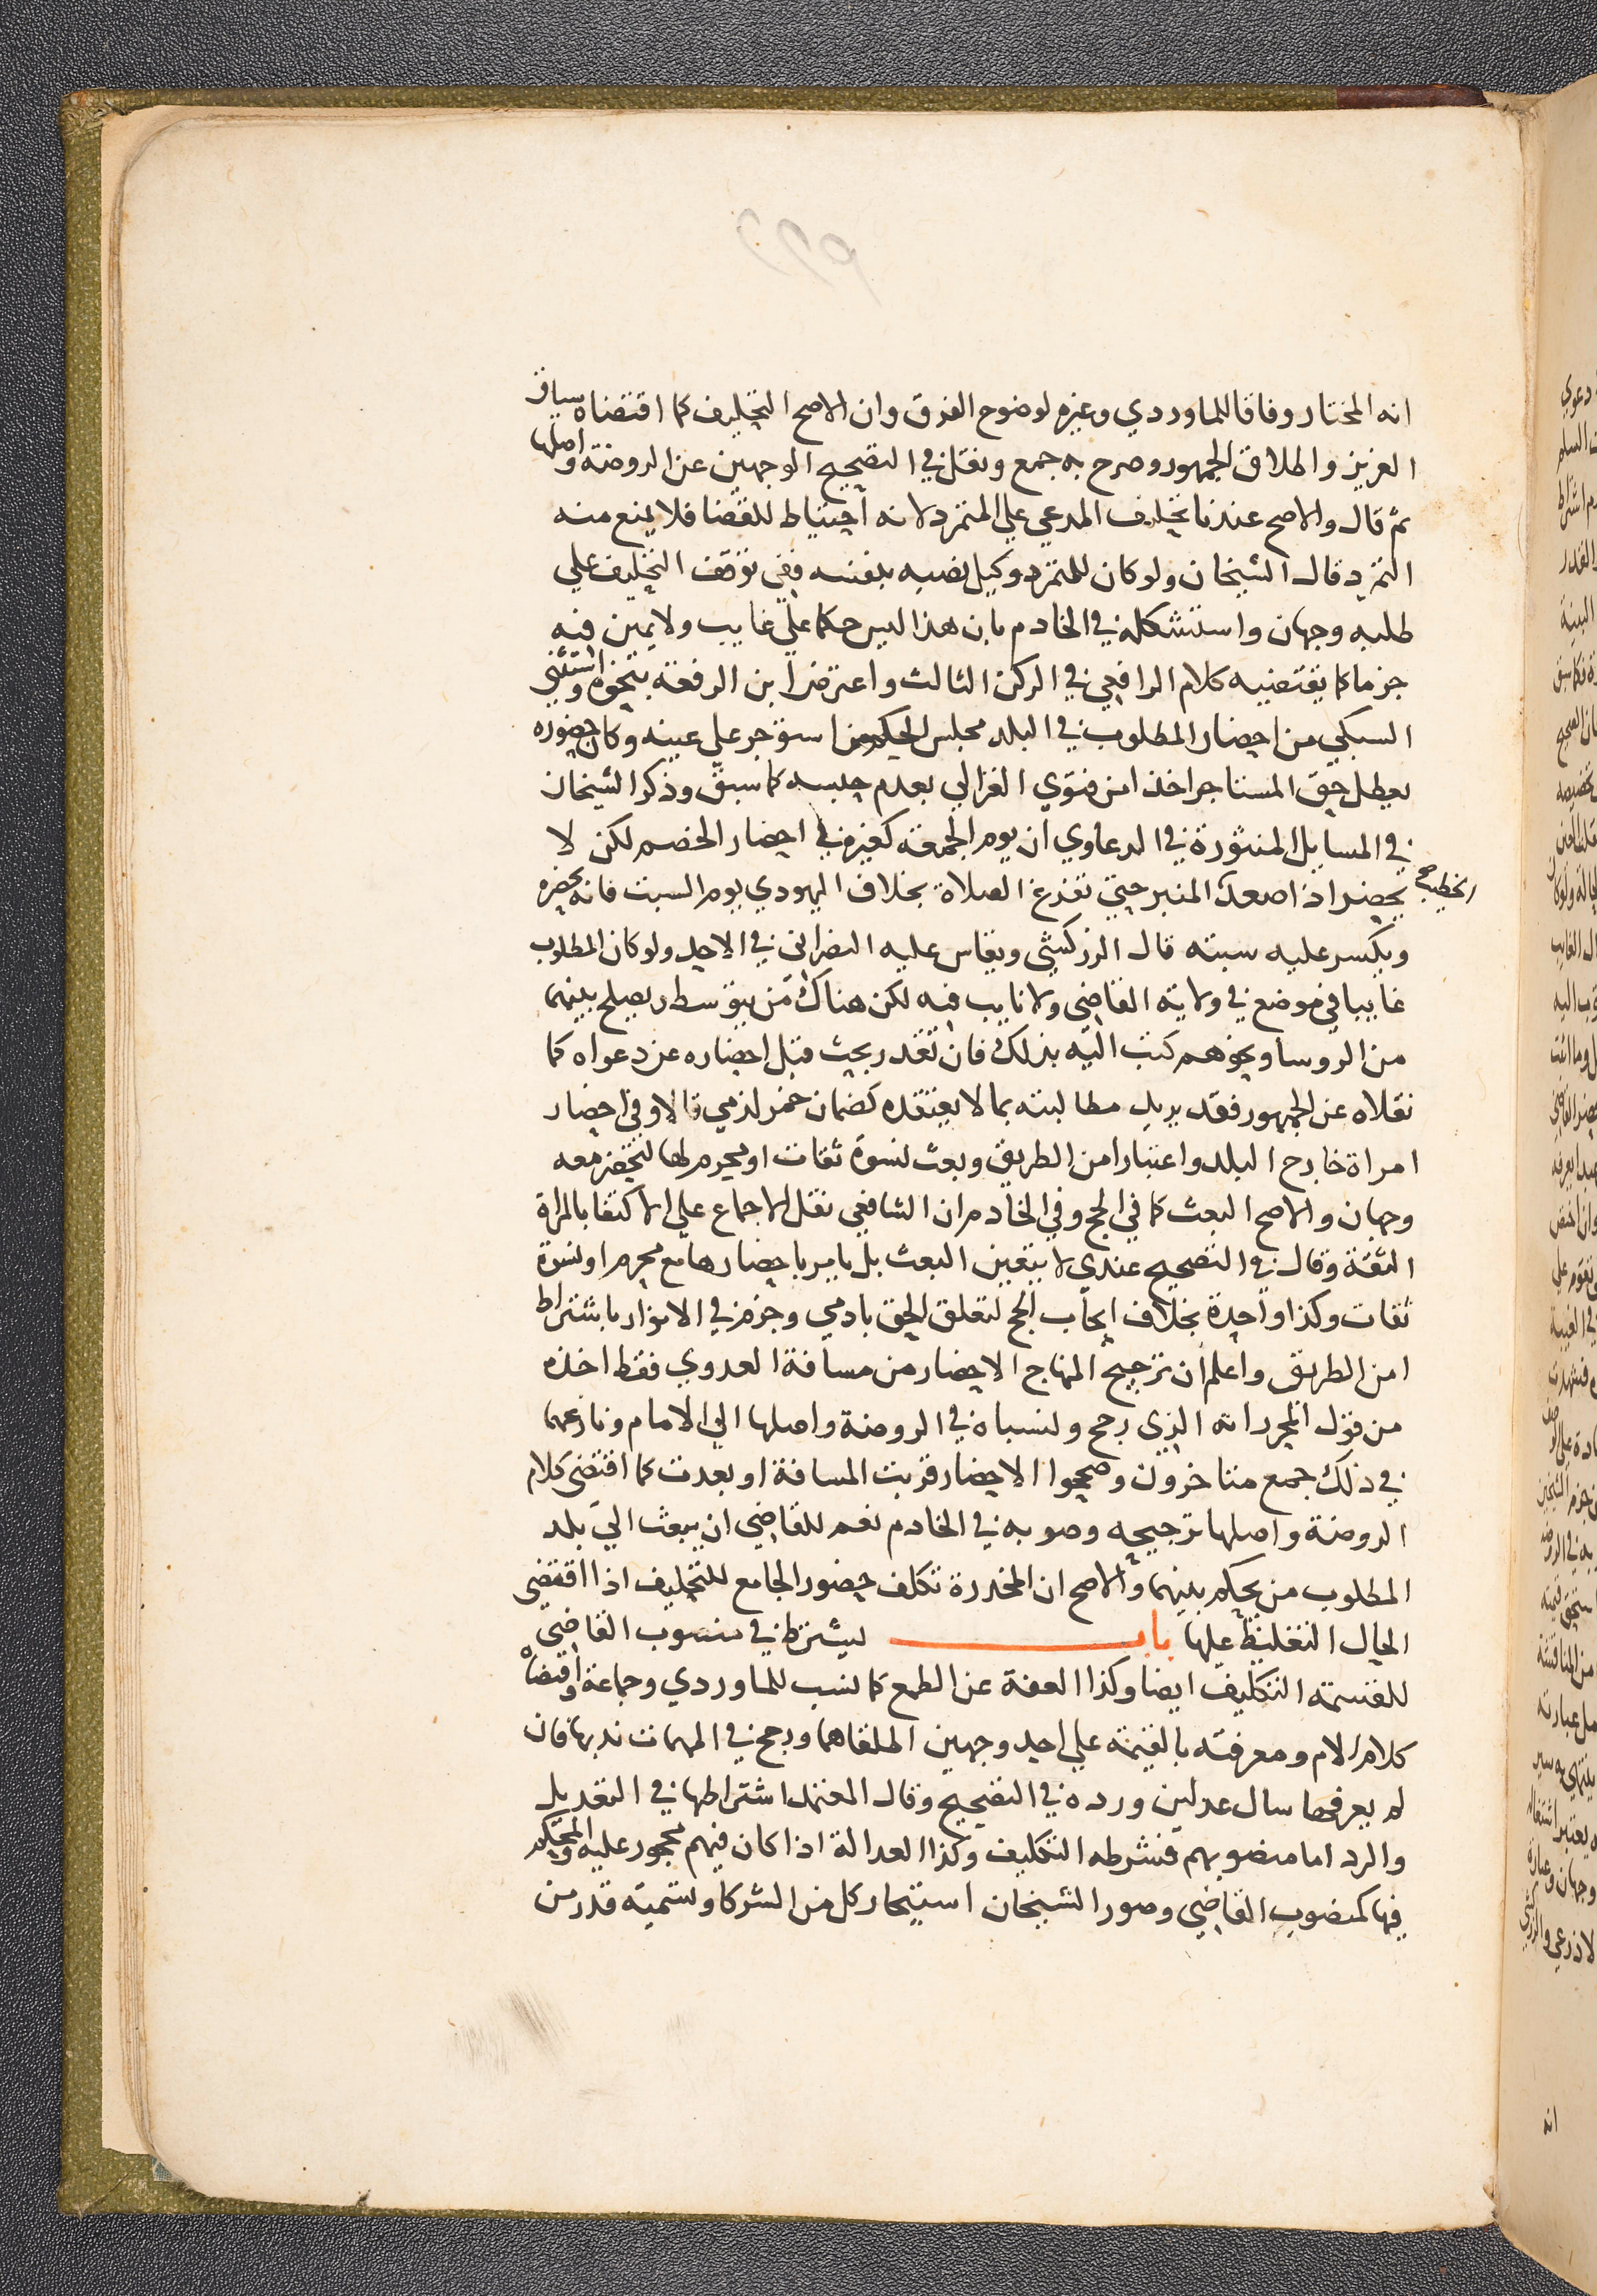 انه المختار وفاقا للماوردي وغيره لوضوح الفرق وان الاصح التحليف كما اقتضاه سياق
العزيز واطلاق الجمهور وصرح به جمع ونقل في التصحيح الوجهين عن الروضة واصلها
ثم قال والاصح عندنا تحليف المدعي علي المتمرد لانه احتياط للقضا فلا يمنع منه
التمرد قال الشيخان ولو كان للمتمرد وكيل نصبه بنفسه ففي توقف التحليف علي
طلبه وجهان واستشكله في الخادم بان هذا ليس حكما علي غايب ولا يمين فيه
جزما كما يقتضيه كلام الرافعي في الركن الثالث واعترض ابن الرفعة بنحوه واستثني
السبكي من احضار المطلوب في البلد مجلس الحكم من استوجر علي عينه وكان حضوره
يعطل حق المستاجر اخذا من فتوي الغزالي بعدم حبسه كما سبق وذكر الشيخان
في المسايل المنثورة في الدعاوي ان يوم الجمعة كغيره في احضار الخصم لكن لا
يحضر اذا صعد الخطيب المنبر حتي تفرغ الصلاة بخلاف اليهودي يوم السبت فانه يحضره
ويكسر عليه سبته قال الزركشي ويقاس عليه النصراني في الاحد ولو كان المطلوب
غايبا في موضع في ولاية القاضي ولا نايب فيه لكن هناك من يتوسط ويصلح بينهما
من الروسا ونحوهم كتب اليه بذلك فان تعذر بحث قبل احضاره عن دعواه كما
نقلاه عن الجمهور فقد يريد مطالبته بما لا يعتقده كضمان خمر لذمي قالا وفي احضار
امراة خارج البلد واعتبار امن الطريق وبعث نسوة ثقات او محرم لها لتحضر معه
وجهان والاصح البعث كما في الحج وفي الخادم ان الشافعي نقل الاجماع علي الاكتفا بالمراة
الثقة وقال في التصحيح عندي لا يتعين البعث بل يامر باحضارها مع محرم او نسوة
ثقات وكذا واحدة بخلاف ايجاب الحج لتعلق الحق بادمي وجزم في الانوار باشتراط
امن الطريق واعلم ان ترجيح المنهاج الاحضار من مسافة العدوي فقط اخذه
من قول المحرر انه الذي رجح ونسباه في الروضة واصلها الي الامام ونازعهما
في ذلك جمع متاخرون وصححوا الاحضار قربت المسافة او بعدت كما اقتضي كلام
الروضة واصلها ترجيحه وصوبه في الخادم نعم للقاضي ان يبعث الي بلد
المطلوب من يحكم بينهما والاصح ان المخدرة تكلف حضور الجامع للتحليف اذا اقتضي
الحال التغليظ عليها باب يشترط في منصوب القاضي
للقسمة التكليف ايضا وكذا العفة عن الطمع كما نسب للماوردي وجماعة واقتضاه
كلام الام ومعرفته بالقيمة علي احد وجهين اطلقاهما ورجح في المهمات ندبها فان
لم يعرفها سال عدلين ورده في التصحيح وقال المعتمد اشتراطها في التعديل
والرد اما منصوبهم فشرطه التكليف وكذا العدالة اذا كان فيهم محجور عليه والمحكم
فيها كمنصوب القاضي وصور الشيخان استيجار كل من الشركا وتسمية قدر من